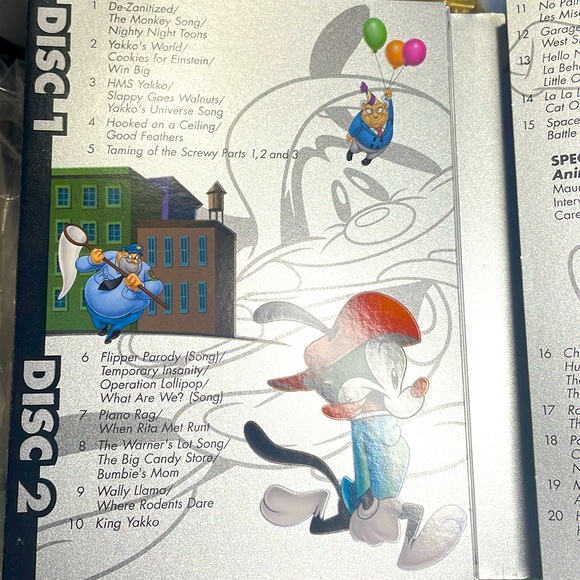 DISC 1
1 De-Zanitized/
The Monkey Song/
Nighty Night Toons
2 Yakko's World/
Cookies for Einstein/
Win Big
3 HMS Yakko/
Slappy Goes Walnuts/
Yakko's Universe Song
4 Hooked on a Ceiling/
Good Feathers
5 Taming of the Screwy Parts 1,2 and 3
DISC 2
6 Flipper Parody (Song)/
Temporary Insanity/
Operation Lollipop/
What Are We? (Song)
7 Piano Rag/
When Rita Met Runt
8 The Warner's Lot Song/
The Big Candy Store/
Bumbie's Mom
9 Wally Llama/
Where Rodents Dare
10 King Yakko
11 No Pain
Les Mise
12 Garage
West Si
13 Hello N
La Beh
Little O
14 La La L
Cat O
15 Space
Battle
SPEC
Anim
Mau
Interv
Care
16 Ch
Hu
The
Th
17 Ra
Th
18 Pa
C
N
19 M
20 H